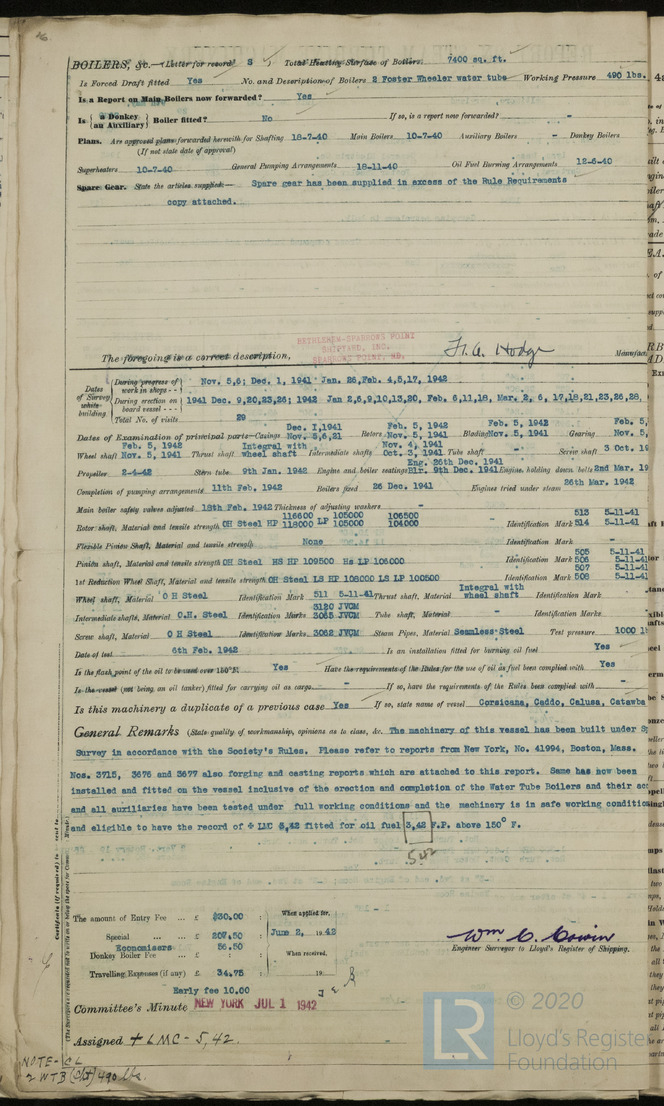 BOILERS, &c.—(Letter for record S ) Total Heating Surface of Boilers 7400 sq. ft.
Is Forced Draft fitted Yes No. and Description of Boilers 2 Foster Wheeler water tube Working Pressure 490 lbs.
Is a Report on Main Boilers now forwarded? Yes
Is { a Donkey / an Auxiliary } Boiler fitted? No If so, is a report now forwarded? -
Plans. Are approved plans forwarded herewith for Shafting 18-7-40 Main Boilers 10-7-40 Auxiliary Boilers - Donkey Boilers
(If not state date of approval)
Superheaters 10-7-40 General Pumping Arrangements 18-11-40 Oil Fuel Burning Arrangements 12-6-40
Spare Gear. State the articles supplied:— Spare gear has been supplied in excess of the Rule Requirements
copy attached.
BETHLEHEM-SPARROWS POINT
SHIPYARD, INC.
SPARROWS POINT, MD.
The foregoing is a correct description, Manufact
Dates of Survey while building
During progress of work in shops - - Nov. 5,6; Dec. 1, 1941 Jan. 26, Feb. 4,5,17, 1942
During erection on board vessel - - - 1941 Dec. 9,20,23,26; 1942 Jan 2,6,9,10,13,20, Feb. 6,11,18, Mar. 2, 6, 17,18,21,23,26,28,
Total No. of visits 29
Dec. 1,1941 Feb. 5, 1942 Feb. 5, 1942 Feb. 5,
Dates of Examination of principal parts—Casings Nov. 5,6,21 Rotors Nov. 5, 1941 Blading Nov. 5, 1941 Gearing Nov. 5,
Feb. 5, 1942 Integral with Nov. 4, 1941
Wheel shaft Nov. 5, 1941 Thrust shaft wheel shaft Intermediate shafts Oct. 3, 1941 Tube shaft - Screw shaft 3 Oct. 19
Eng. 26th Dec. 1941
Propeller 2-4-42 Stern tube 9th Jan. 1942 Engine and boiler seatings Blr. 9th Dec. 1941 Engine holding down bolts 2nd Mar. 19
Completion of pumping arrangements 11th Feb. 1942 Boilers fixed 26 Dec. 1941 Engines tried under steam 26th Mar. 1942
Main boiler safety valves adjusted 18th Feb. 1942 Thickness of adjusting washers -
116600 105000 106500 513 5-11-41
Rotor shaft, Material and tensile strength OH Steel HP 118000 LP 105000 104000 Identification Mark 514 5-11-41
Flexible Pinion Shaft, Material and tensile strength None Identification Mark -
505 5-11-41
Pinion shaft, Material and tensile strength OH Steel HS HP 109500 Hs LP 106000 Identification Mark 506 5-11-41
507 5-11-41
1st Reduction Wheel Shaft, Material and tensile strength OH Steel LS HP 108000 LS LP 100500 Identification Mark 508 5-11-41
Integral with
Wheel shaft, Material O H Steel Identification Mark 511 5-11-41 Thrust shaft, Material wheel shaft Identification Mark
3120 JVCM
Intermediate shafts, Material O.H. Steel Identification Marks 3065 JVCM Tube shaft, Material - Identification Marks
Screw shaft, Material O H Steel Identification Marks 3062 JVCM Steam Pipes, Material Seamless Steel Test pressure 1000 l
Date of test 6th Feb. 1942 Is an installation fitted for burning oil fuel Yes
Is the flash point of the oil to be used over 150°F. Yes Have the requirements of the Rules for the use of oil as fuel been complied with Yes
Is the vessel (not being an oil tanker) fitted for carrying oil as cargo - If so, have the requirements of the Rules been complied with -
Is this machinery a duplicate of a previous case Yes If so, state name of vessel Corsicana, Caddo, Calusa, Catawba
General Remarks (State quality of workmanship, opinions as to class, &c. The machinery of this vessel has been built under S
Survey in accordance with the Society's Rules. Please refer to reports from New York, No. 41994, Boston, Mass.
Nos. 3715, 3676 and 3677 also forging and casting reports which are attached to this report. Same has now been
installed and fitted on the vessel inclusive of the erection and completion of the Water Tube Boilers and their acc
and all auxiliaries have been tested under full working conditions and the machinery is in safe working condition
and eligible to have the record of + LMC 3,42 fitted for oil fuel 3,42 F.P. above 150° F.
5.42
The amount of Entry Fee ... £ $30.00 : When applied for,
Special ... ... £ 207.50 : June 2, 1942
Economisers 56.50
Donkey Boiler Fee ... £ : : When received,
Travelling Expenses (if any) £ 34.75 : 19
Early fee 10.00
Engineer Surveyor to Lloyd's Register of Shipping.
Committee's Minute NEW YORK JUL 1 1942
Assigned + LMC - 5,42.
NOTE- CL
2 WTB (Spt) 490 lbs.
LR © 2020
Lloyd's Register
Foundation